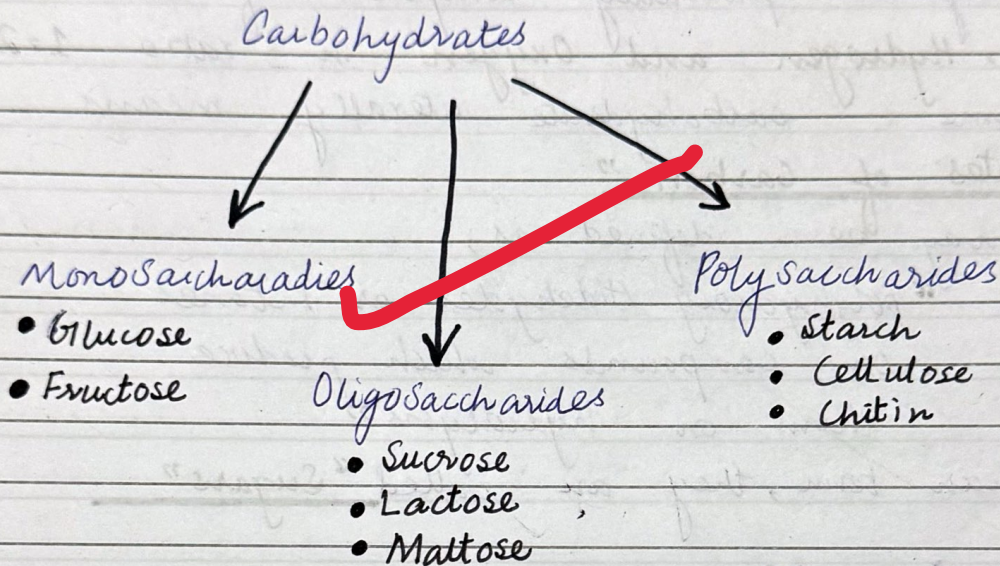 Carbohydrates
MonoSaccharadies
• Glucose
• Fructose
OligoSaccharides
• Sucrose
• Lactose
• Maltose
PolySaccharides
• Starch
• Cellulose
• Chitin